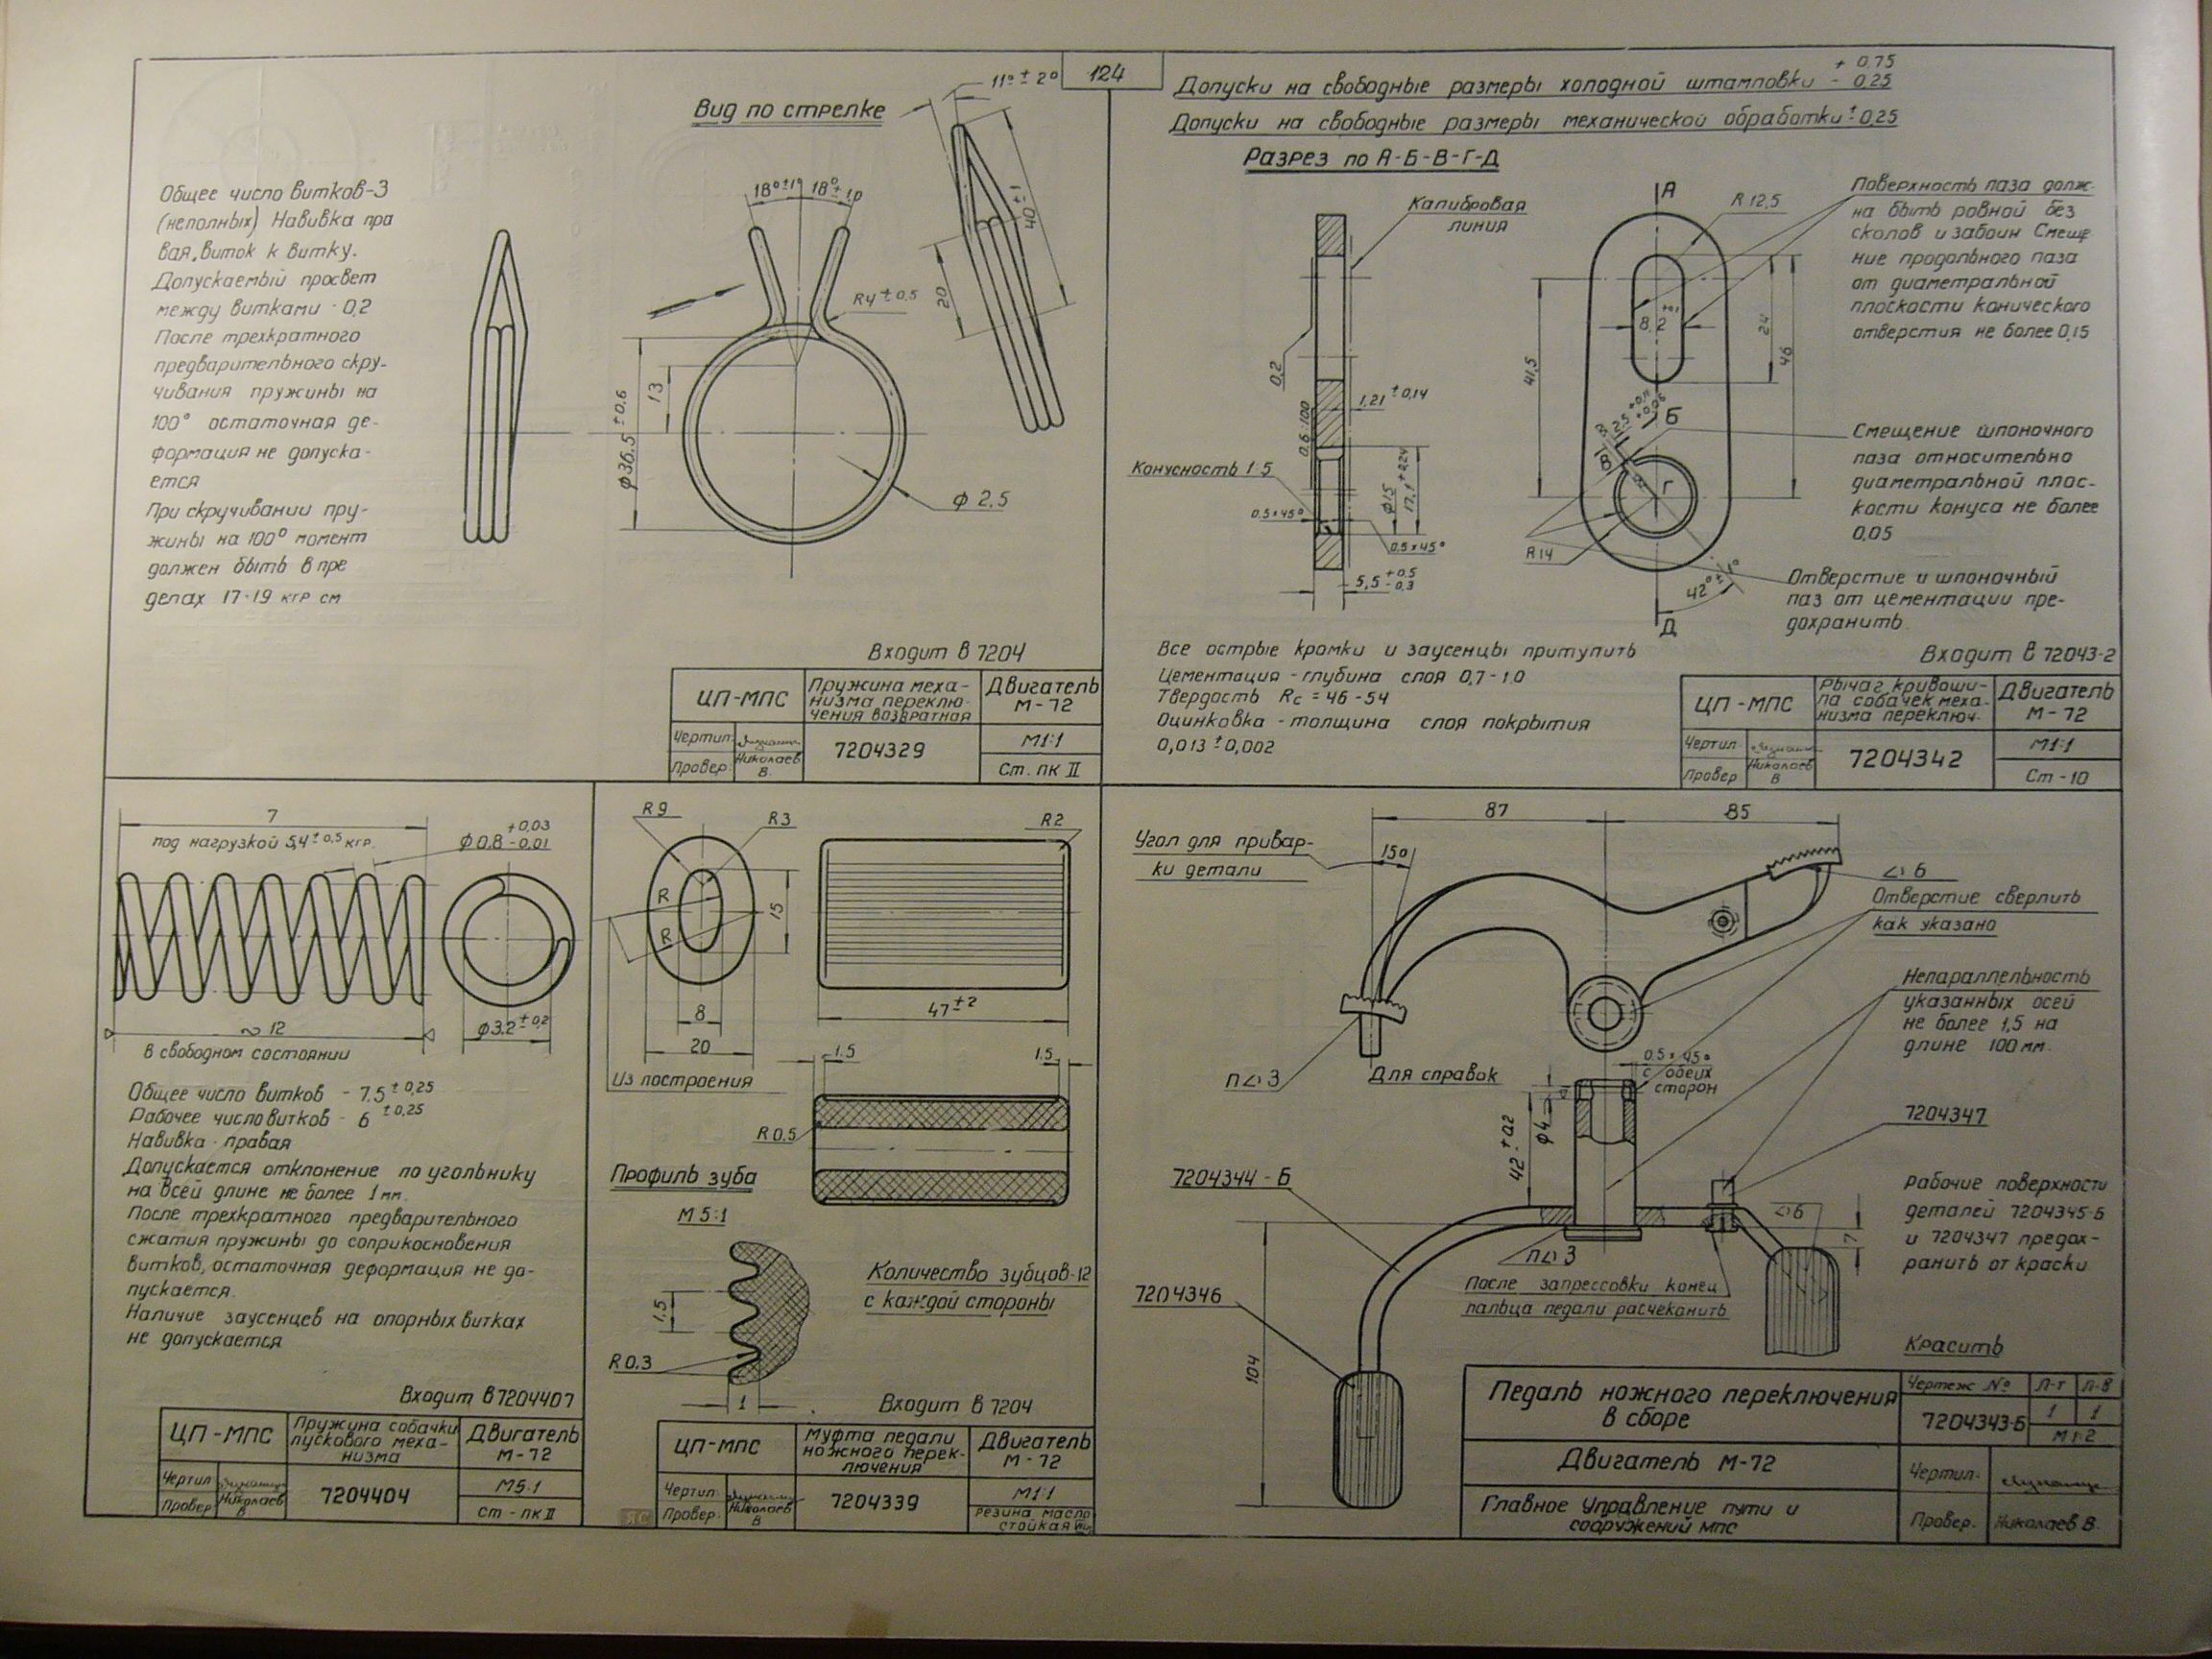 124
Вид по стрелке
11° ± 2°
18°±1° 18°±1°
40±1
20
R4±0.5
13
ф36.5±0.6
ф 2.5
Общее число витков-3
(неполных) Навивка пра
вая, виток к витку.
Допускаемый просвет
между витками - 0,2
После трехкратного
предварительного скру-
чивания пружины на
100° остаточная де-
формация не допуска-
ется
При скручивании пру-
жины на 100° момент
должен быть в пре
делах 17-19 кгр см
Входит в 7204
ЦП-МПС
Пружина меха-
низма переклю-
чения возвратная
Двигатель
М-72
Чертил
Провер.
Николаев
В.
7204329
М1:1
Ст. пк II
Допуски на свободные размеры холодной штамповки + 0.75 - 0.25
Допуски на свободные размеры механической обработки ± 0,25
Разрез по А-Б-В-Г-Д
Калибровая
линия
0,2
1,21 ± 0,14
0,6:100
Конусность 1:5
0.5×45°
ф15
17,1 +0,24
0.5×45°
5,5 +0.5 -0.3
А
R 12,5
8,2 +0,1
24
46
41,5
Б
В
Г
R14
42° ± 1°
Д
Поверхность паза долж-
на быть ровной без
сколов и забоин Смеще
ние продольного паза
от диаметральной
плоскости конического
отверстия не более 0,15
Смещение шпоночного
паза относительно
диаметральной плос-
кости конуса не более
0,05
Отверстие и шпоночный
паз от цементации пре-
дохранить.
Все острые кромки и заусенцы притупить
Цементация - глубина слоя 0,7-1.0
Твердость Rc = 46-54
Оцинковка - толщина слоя покрытия
0,013 ± 0,002
Входит в 72043-2
ЦП-МПС
Рычаг кривоши-
па собачек меха-
низма переключ.
Двигатель
М-72
Чертил
Провер
Николаев
В
7204342
М1:1
Ст-10
7
под нагрузкой 5,4 ± 0.5 кгр.
ф0.8 +0,03 -0,01
∾ 12
в свободном состоянии
ф3.2 ± 0,2
Общее число витков - 7.5 ± 0,25
Рабочее число витков - 6 ± 0.25
Навивка - правая
Допускается отклонение по угольнику
на всей длине не более 1 мм.
После трехкратного предварительного
сжатия пружины до соприкосновения
витков, остаточная деформация не до-
пускается.
Наличие заусенцев на опорных витках
не допускается
Входит в 7204407
ЦП-МПС
Пружина собачки
пускового меха-
низма
Двигатель
М-72
Чертил
Провер.
Николаев
В
7204404
М5:1
ст-пк II
R9
R3
R2
R
R
15
8
20
Из построения
47±2
1.5
1.5
R 0.5
Профиль зуба
М 5:1
1,5
R 0.3
1
Количество зубцов-12
с каждой стороны
Входит в 7204
ЦП-МПС
Муфта педали
ножного перек-
лючения
Двигатель
М-72
Чертил.
Провер.
Николаев
В
7204339
М1:1
резина масло
стойкая
87
85
15°
Угол для привар-
ки детали
6
Отверстие сверлить
как указано
Непараллельность
указанных осей
не более 1,5 на
длине 100 мм.
3
Для справок
0.5 × 45°
с обеих
сторон
7204347
42 ± 0.2
ф4
7204344-Б
7204346
104
3
6
7
После запрессовки конец
пальца педали расчеканить
Рабочие поверхности
деталей 7204345-Б
и 7204347 предох-
ранить от краски
Красить
Педаль ножного переключения
в сборе
Чертеж №
Л-т
Л-в
7204343-Б
1
1
М 1:2
Двигатель М-72
Чертил.
Главное Управление пути и
сооружений МПС
Провер.
Николаев В.